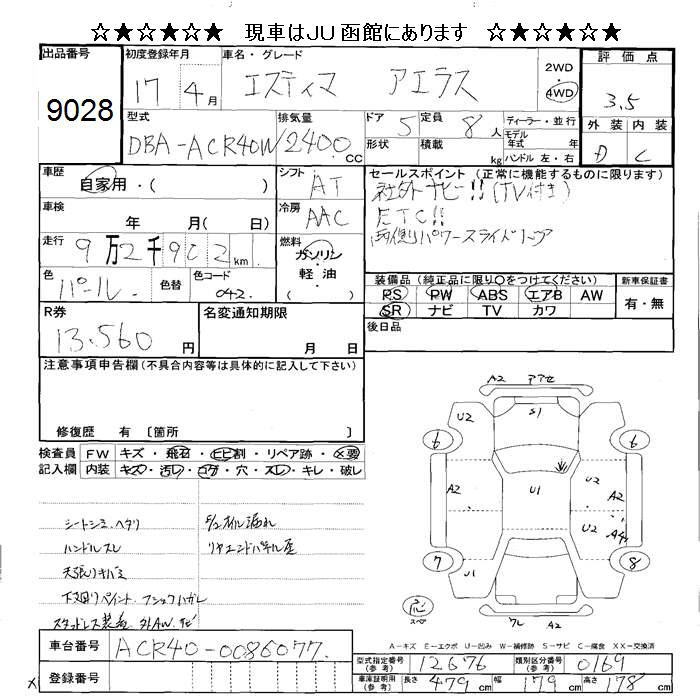 ☆★☆★☆ 現車はJU函館にあります ☆★☆★☆
出品番号 9028
初度登録年月 17 4月
車名・グレード エスティマ アエラス
2WD
4WD
評価点 3.5
外装 内装
D C
型式 DBA-ACR40W
排気量 2400 CC
ドア 5
定員 8人
形状
積載 kg
ディーラー・並行
モデル年式 年
ハンドル 左・右
車歴 自家用・( )
シフト AT
車検 年 月( 日)
冷房 AAC
走行 9万2千902km
燃料 ガソリン・軽油
色 パール
色替
色コード 042
R券 13.560円
名変通知期限 月 日
セールスポイント (正常に機能するものに限ります)
社外ナビ!!(TV付き)
ETC!!
両側パワースライドドア
装備品(純正品に限り○をつけてください)
PS PW ABS エアB AW
SR ナビ TV カワ
新車保証書
有・無
後日品
注意事項申告欄(不具合内容等は具体的に記入して下さい)
修復歴 有 〔箇所 〕
検査員記入欄
FW キズ・飛石・ヒビ・穴・リペア跡・×要
内装 キズ・汚レ・コゲ・穴・スレ・キレ・破レ
シートシミ.ヘタリ
ハンドルスレ
天張りキバミ
下廻りペイント.フショクハガレ
スタッドレス装着 外AW.ナビ
E/Gオイル漏れ
リヤエンドパネル歪
A2 アアせ
U2 S1
6 6
A2 U1 A2
U2 A4
7 8
U1
応 スペ
ワレ A2
A-キズ E-エクボ U-凹み W-補修跡 S-サビ C-腐食 XX-交換済
車台番号 ACR40-0086077
登録番号
型式指定番号(参考) 12676
類別区分番号(参考) 0169
車庫証明用(参考) 長さ 479cm 幅 179cm 高さ 178cm